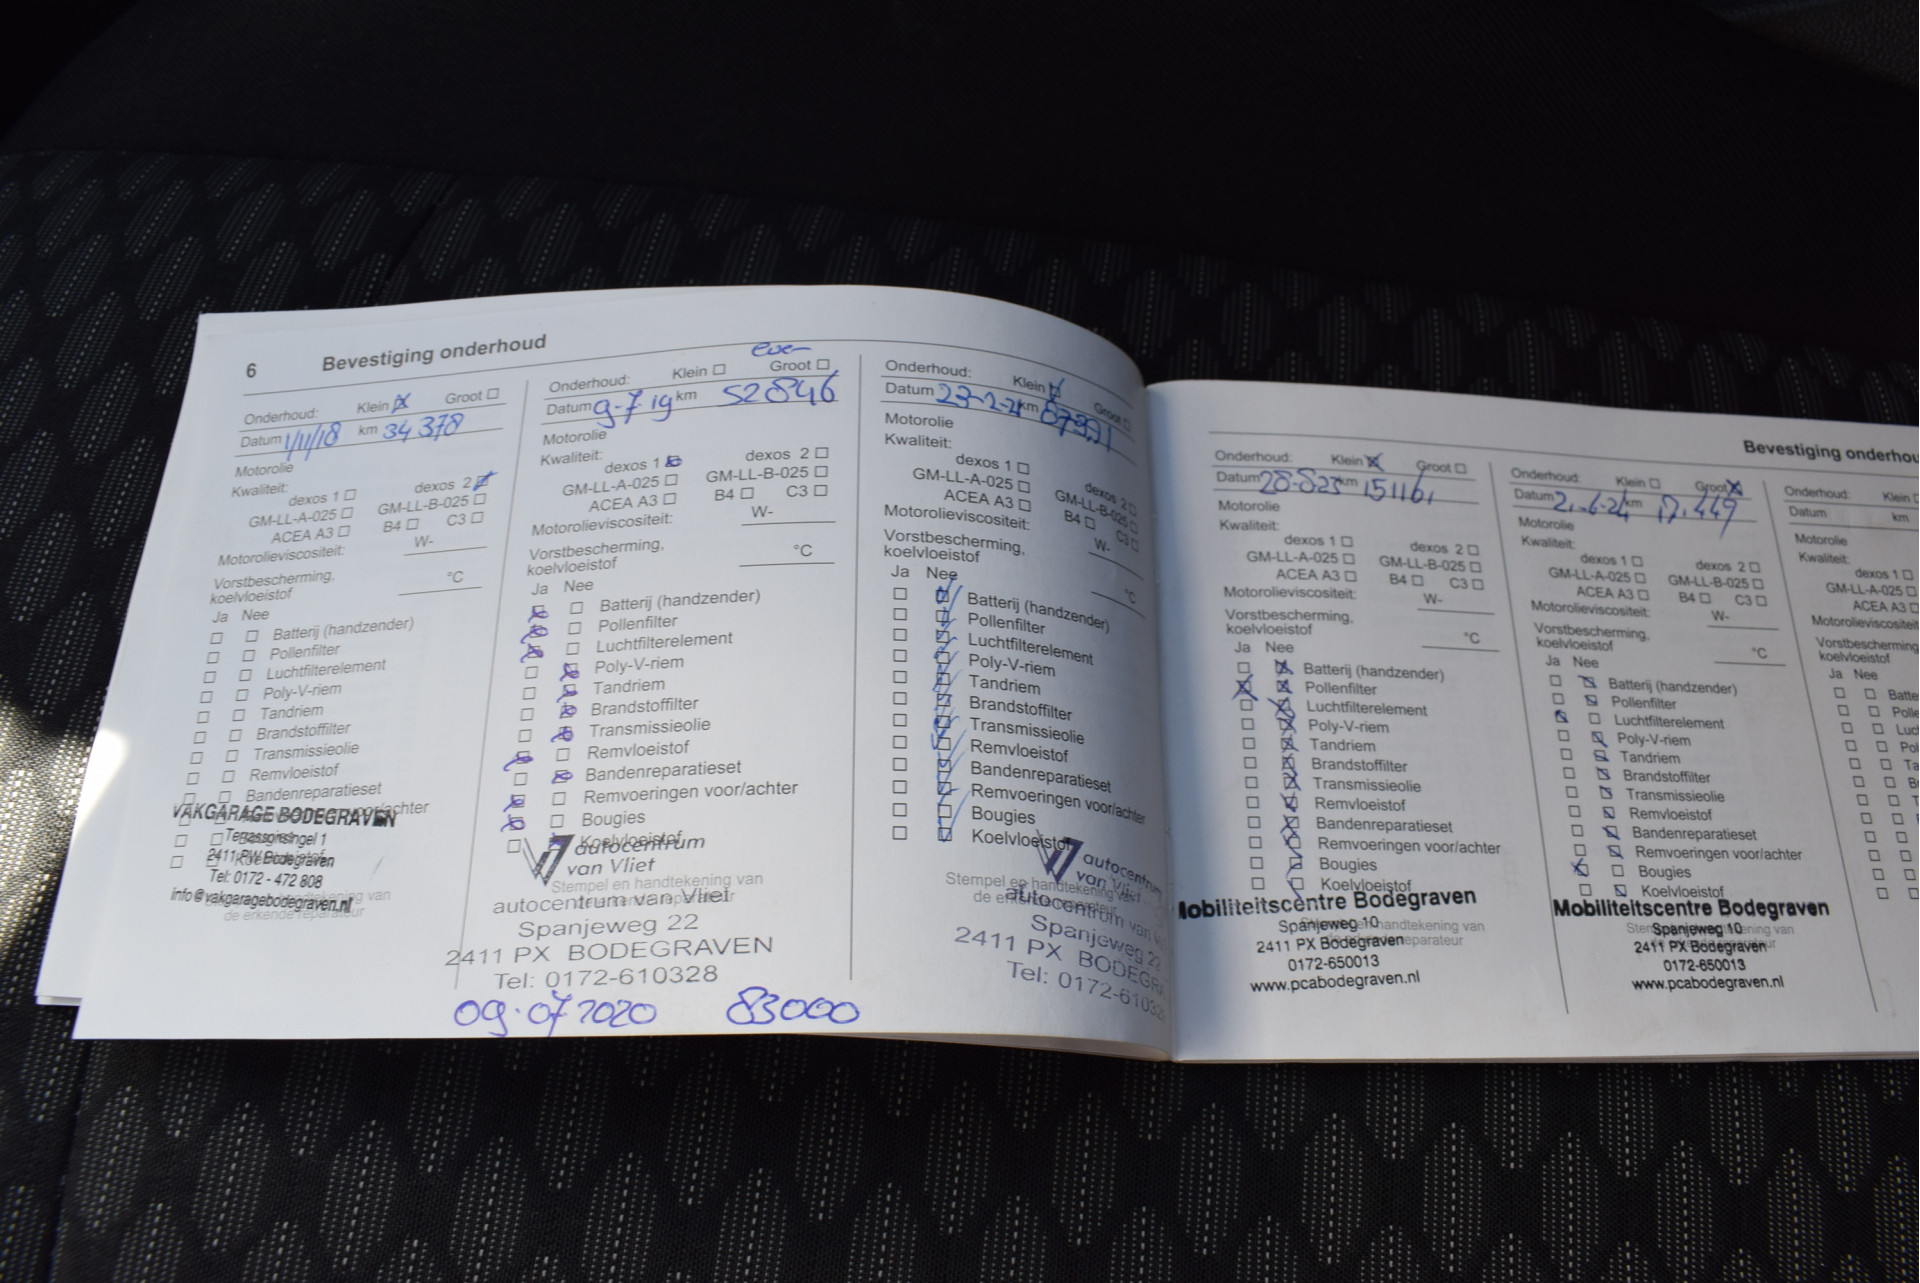 6 Bevestiging onderhoud
Onderhoud: Klein ☒ Groot ☐
Datum 1/11/18 km 34378
Motorolie
Kwaliteit:
dexos 1 ☐ dexos 2 ☒
GM-LL-A-025 ☐ GM-LL-B-025 ☐
ACEA A3 ☐ B4 ☐ C3 ☐
Motorolieviscositeit: W-
Vorstbescherming,
koelvloeistof °C
Ja Nee
☐ ☐ Batterij (handzender)
☐ ☐ Pollenfilter
☐ ☐ Luchtfilterelement
☐ ☐ Poly-V-riem
☐ ☐ Tandriem
☐ ☐ Brandstoffilter
☐ ☐ Transmissieolie
☐ ☐ Remvloeistof
☐ ☐ Bandenreparatieset
voor/achter
VAKGARAGE BODEGRAVEN
2411 PW Bodegraven
Tel: 0172 - 472 808
info@vakgaragebodegraven.nl
de erkende reparateur
Onderhoud: Klein ☐ Groot ☐
Datum 9-7-19 km 52846
Motorolie
Kwaliteit:
dexos 1 ☒ dexos 2 ☐
GM-LL-A-025 ☐ GM-LL-B-025 ☐
ACEA A3 ☐ B4 ☐ C3 ☐
Motorolieviscositeit: W-
Vorstbescherming,
koelvloeistof °C
Ja Nee
☒ ☐ Batterij (handzender)
☒ ☐ Pollenfilter
☒ ☐ Luchtfilterelement
☐ ☒ Poly-V-riem
☐ ☒ Tandriem
☐ ☒ Brandstoffilter
☐ ☒ Transmissieolie
☒ ☐ Remvloeistof
☐ ☒ Bandenreparatieset
☒ ☐ Remvoeringen voor/achter
☒ ☐ Bougies
☐ ☒ Koelvloeistof
autocentrum
van Vliet
Stempel en handtekening van
de erkende reparateur
autocentrum van Vliet
Spanjeweg 22
2411 PX BODEGRAVEN
Tel: 0172-610328
09-07 2020 83000
Onderhoud: Klein ☒ Groot ☐
Datum 23-2-21 km
Motorolie
Kwaliteit:
dexos 1 ☐ dexos 2 ☐
GM-LL-A-025 ☐ GM-LL-B-025 ☐
ACEA A3 ☐ B4 ☐ C3 ☐
Motorolieviscositeit: W-
Vorstbescherming,
koelvloeistof °C
Ja Nee
☐ ☒ Batterij (handzender)
☐ ☒ Pollenfilter
☐ ☒ Luchtfilterelement
☐ ☒ Poly-V-riem
☐ ☒ Tandriem
☐ ☒ Brandstoffilter
☐ ☒ Transmissieolie
☐ ☒ Remvloeistof
☐ ☒ Bandenreparatieset
☐ ☒ Remvoeringen voor/achter
☐ ☒ Bougies
☐ ☒ Koelvloeistof
autocentrum
van Vliet
Stempel en handtekening van
de erkende reparateur
autocentrum van
Spanjeweg 22
2411 PX BODEGRA
Tel: 0172-61032
Bevestiging onderhou
Onderhoud: Klein ☒ Groot ☐
Datum 28-8-23 km 151161
Motorolie
Kwaliteit:
dexos 1 ☐ dexos 2 ☐
GM-LL-A-025 ☐ GM-LL-B-025 ☐
ACEA A3 ☐ B4 ☐ C3 ☐
Motorolieviscositeit: W-
Vorstbescherming,
koelvloeistof °C
Ja Nee
☐ ☒ Batterij (handzender)
☒ ☒ Pollenfilter
☐ ☒ Luchtfilterelement
☐ ☒ Poly-V-riem
☐ ☒ Tandriem
☐ ☒ Brandstoffilter
☐ ☒ Transmissieolie
☐ ☒ Remvloeistof
☐ ☒ Bandenreparatieset
☐ ☒ Remvoeringen voor/achter
☐ ☒ Bougies
☐ ☒ Koelvloeistof
Mobiliteitscentre Bodegraven
Spanjeweg 10
2411 PX Bodegraven
0172-650013
www.pcabodegraven.nl
Onderhoud: Klein ☐ Groot ☒
Datum km
Motorolie
Kwaliteit:
dexos 1 ☐ dexos 2 ☐
GM-LL-A-025 ☐ GM-LL-B-025 ☐
ACEA A3 ☐ B4 ☐ C3 ☐
Motorolieviscositeit: W-
Vorstbescherming,
koelvloeistof °C
Ja Nee
☐ ☒ Batterij (handzender)
☐ ☒ Pollenfilter
☒ ☐ Luchtfilterelement
☐ ☒ Poly-V-riem
☐ ☒ Tandriem
☐ ☒ Brandstoffilter
☐ ☒ Transmissieolie
☐ ☒ Remvloeistof
☐ ☒ Bandenreparatieset
☐ ☒ Remvoeringen voor/achter
☒ ☐ Bougies
☐ ☒ Koelvloeistof
Mobiliteitscentre Bodegraven
Spanjeweg 10
2411 PX Bodegraven
0172-650013
www.pcabodegraven.nl
Onderhoud: Klein ☐
Datum km
Motorolie
Kwaliteit:
dexos 1 ☐
GM-LL-A-025 ☐
ACEA A3 ☐
Motorolieviscositeit
Vorstbescherming,
koelvloeistof
Ja Nee
☐ ☐ Batte
☐ ☐ Polle
☐ ☐ Luc
☐ ☐ Pol
☐ ☐ Ta
☐ ☐ Br